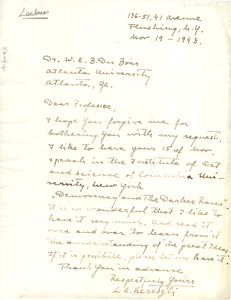 Lectures
136-51, 41 avenue
Flushing, N.Y.
Nov. 19 - 1943.
Dr. W. E. B. Du Bois
Atlanta University
Atlanta, Ga.
Dear Professor,
I hope you forgive me for
bothering you with my request,
I like to have your 15 of Nov.
speach in the Institute of Art
and science of Columbia Uni-
versity, New York
"Democracy and The Darker Races"
it is so wonderful that I like to
have it very much and read it
over and over to learn from it
the understanding of the great Ideas.
If it is possible, please let me have it.
Thank you in advance
Respectfully Yours
L. E.